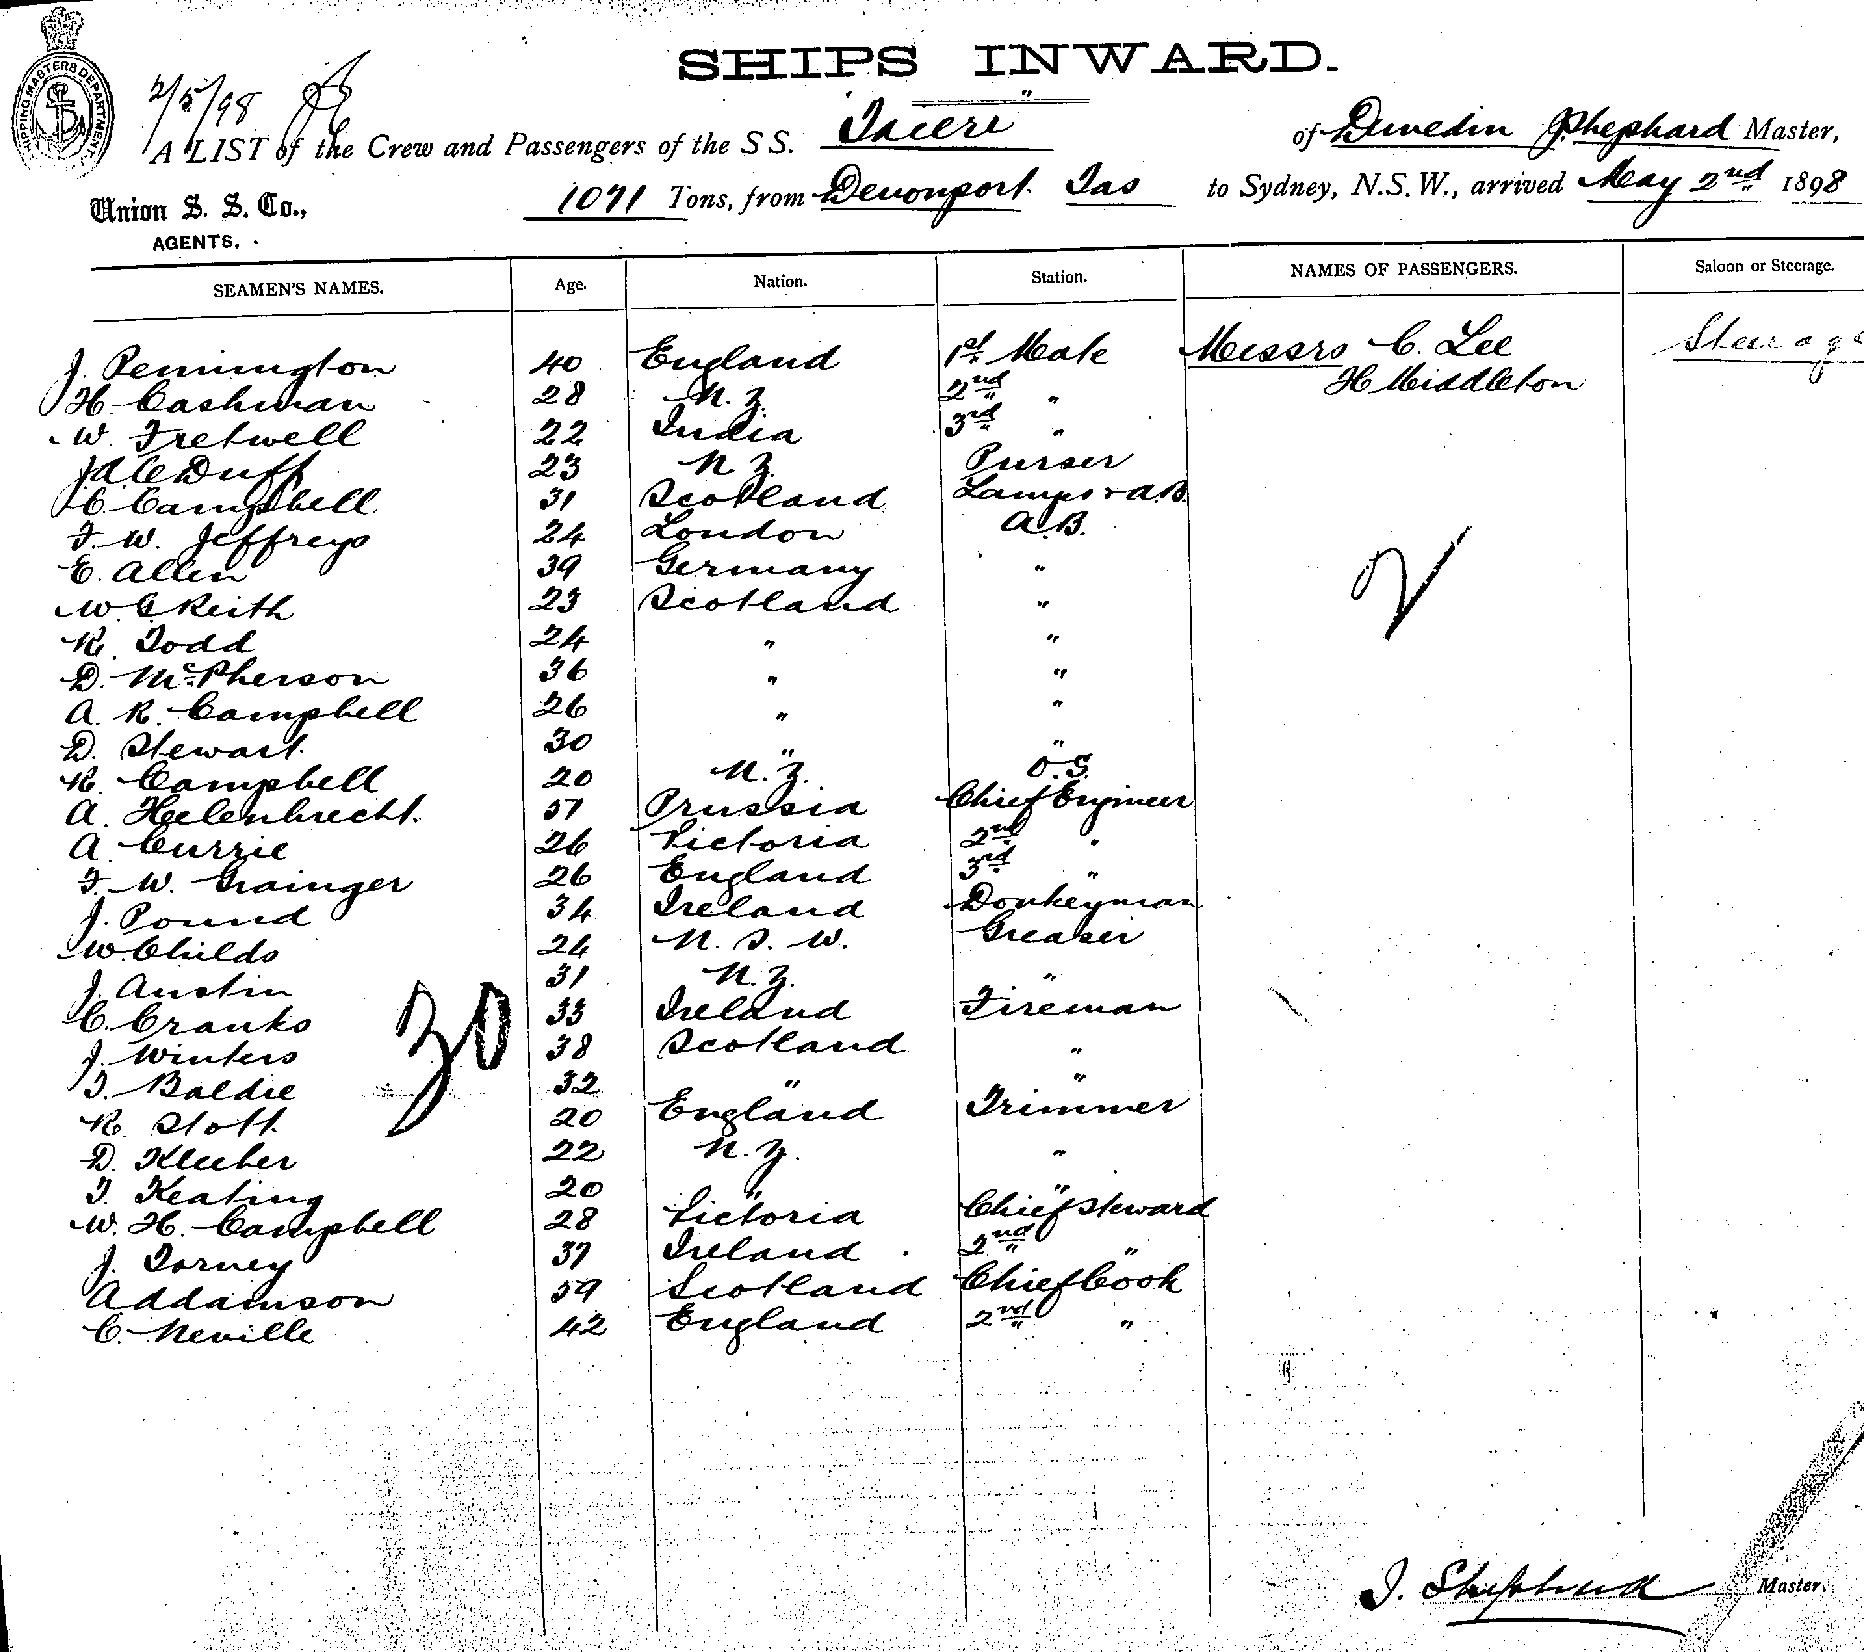 SHIPS INWARD.
SHIPPING MASTERS DEPARTMENT
2/5/98
A LIST of the Crew and Passengers of the S S. Taieri of Dunedin J Shephard Master,
Union S. S. Co., 1071 Tons, from Devonport. Tas to Sydney, N.S.W., arrived May 2nd 1898
AGENTS.
SEAMEN'S NAMES. Age. Nation. Station. NAMES OF PASSENGERS. Saloon or Steerage.
J. Pennington 40 England 1st Mate Messrs C. Lee Steerage
H. Cashman 28 N. Z. 2nd " H Middleton
W. Fretwell 22 India 3rd "
J A C Duff 23 N Z. Purser
C Campbell 31 Scotland Lamps & A.B.
F. W. Jeffreys 24 London A.B.
E. Allen 39 Germany "
W G Keith 23 Scotland "
R. Todd 24 " "
D. McPherson 36 " "
A. R. Campbell 26 " "
D. Stewart. 30 " "
R. Campbell 20 N. Z. O.S.
A. Helenbrecht. 57 Prussia Chief Engineer
A Currie 26 Victoria 2nd "
F. W. Grainger 26 England 3rd "
J. Pound 34 Ireland Donkeyman
W Childs 24 N. S. W. Greaser
J. Austin 31 N. Z. "
C. Cranks 33 Ireland Fireman
J. Winters 38 Scotland "
T. Baldie 32 " "
R. Stott 20 England Trimmer
D. Kleeher 22 N. Z. "
T. Keating 20 " "
W. H. Campbell 28 Victoria Chief Steward
J. Torney 37 Ireland 2nd "
A Adamson 59 Scotland Chief Cook
C. Neville 42 England 2nd "
30
2
J. Shephard Master.